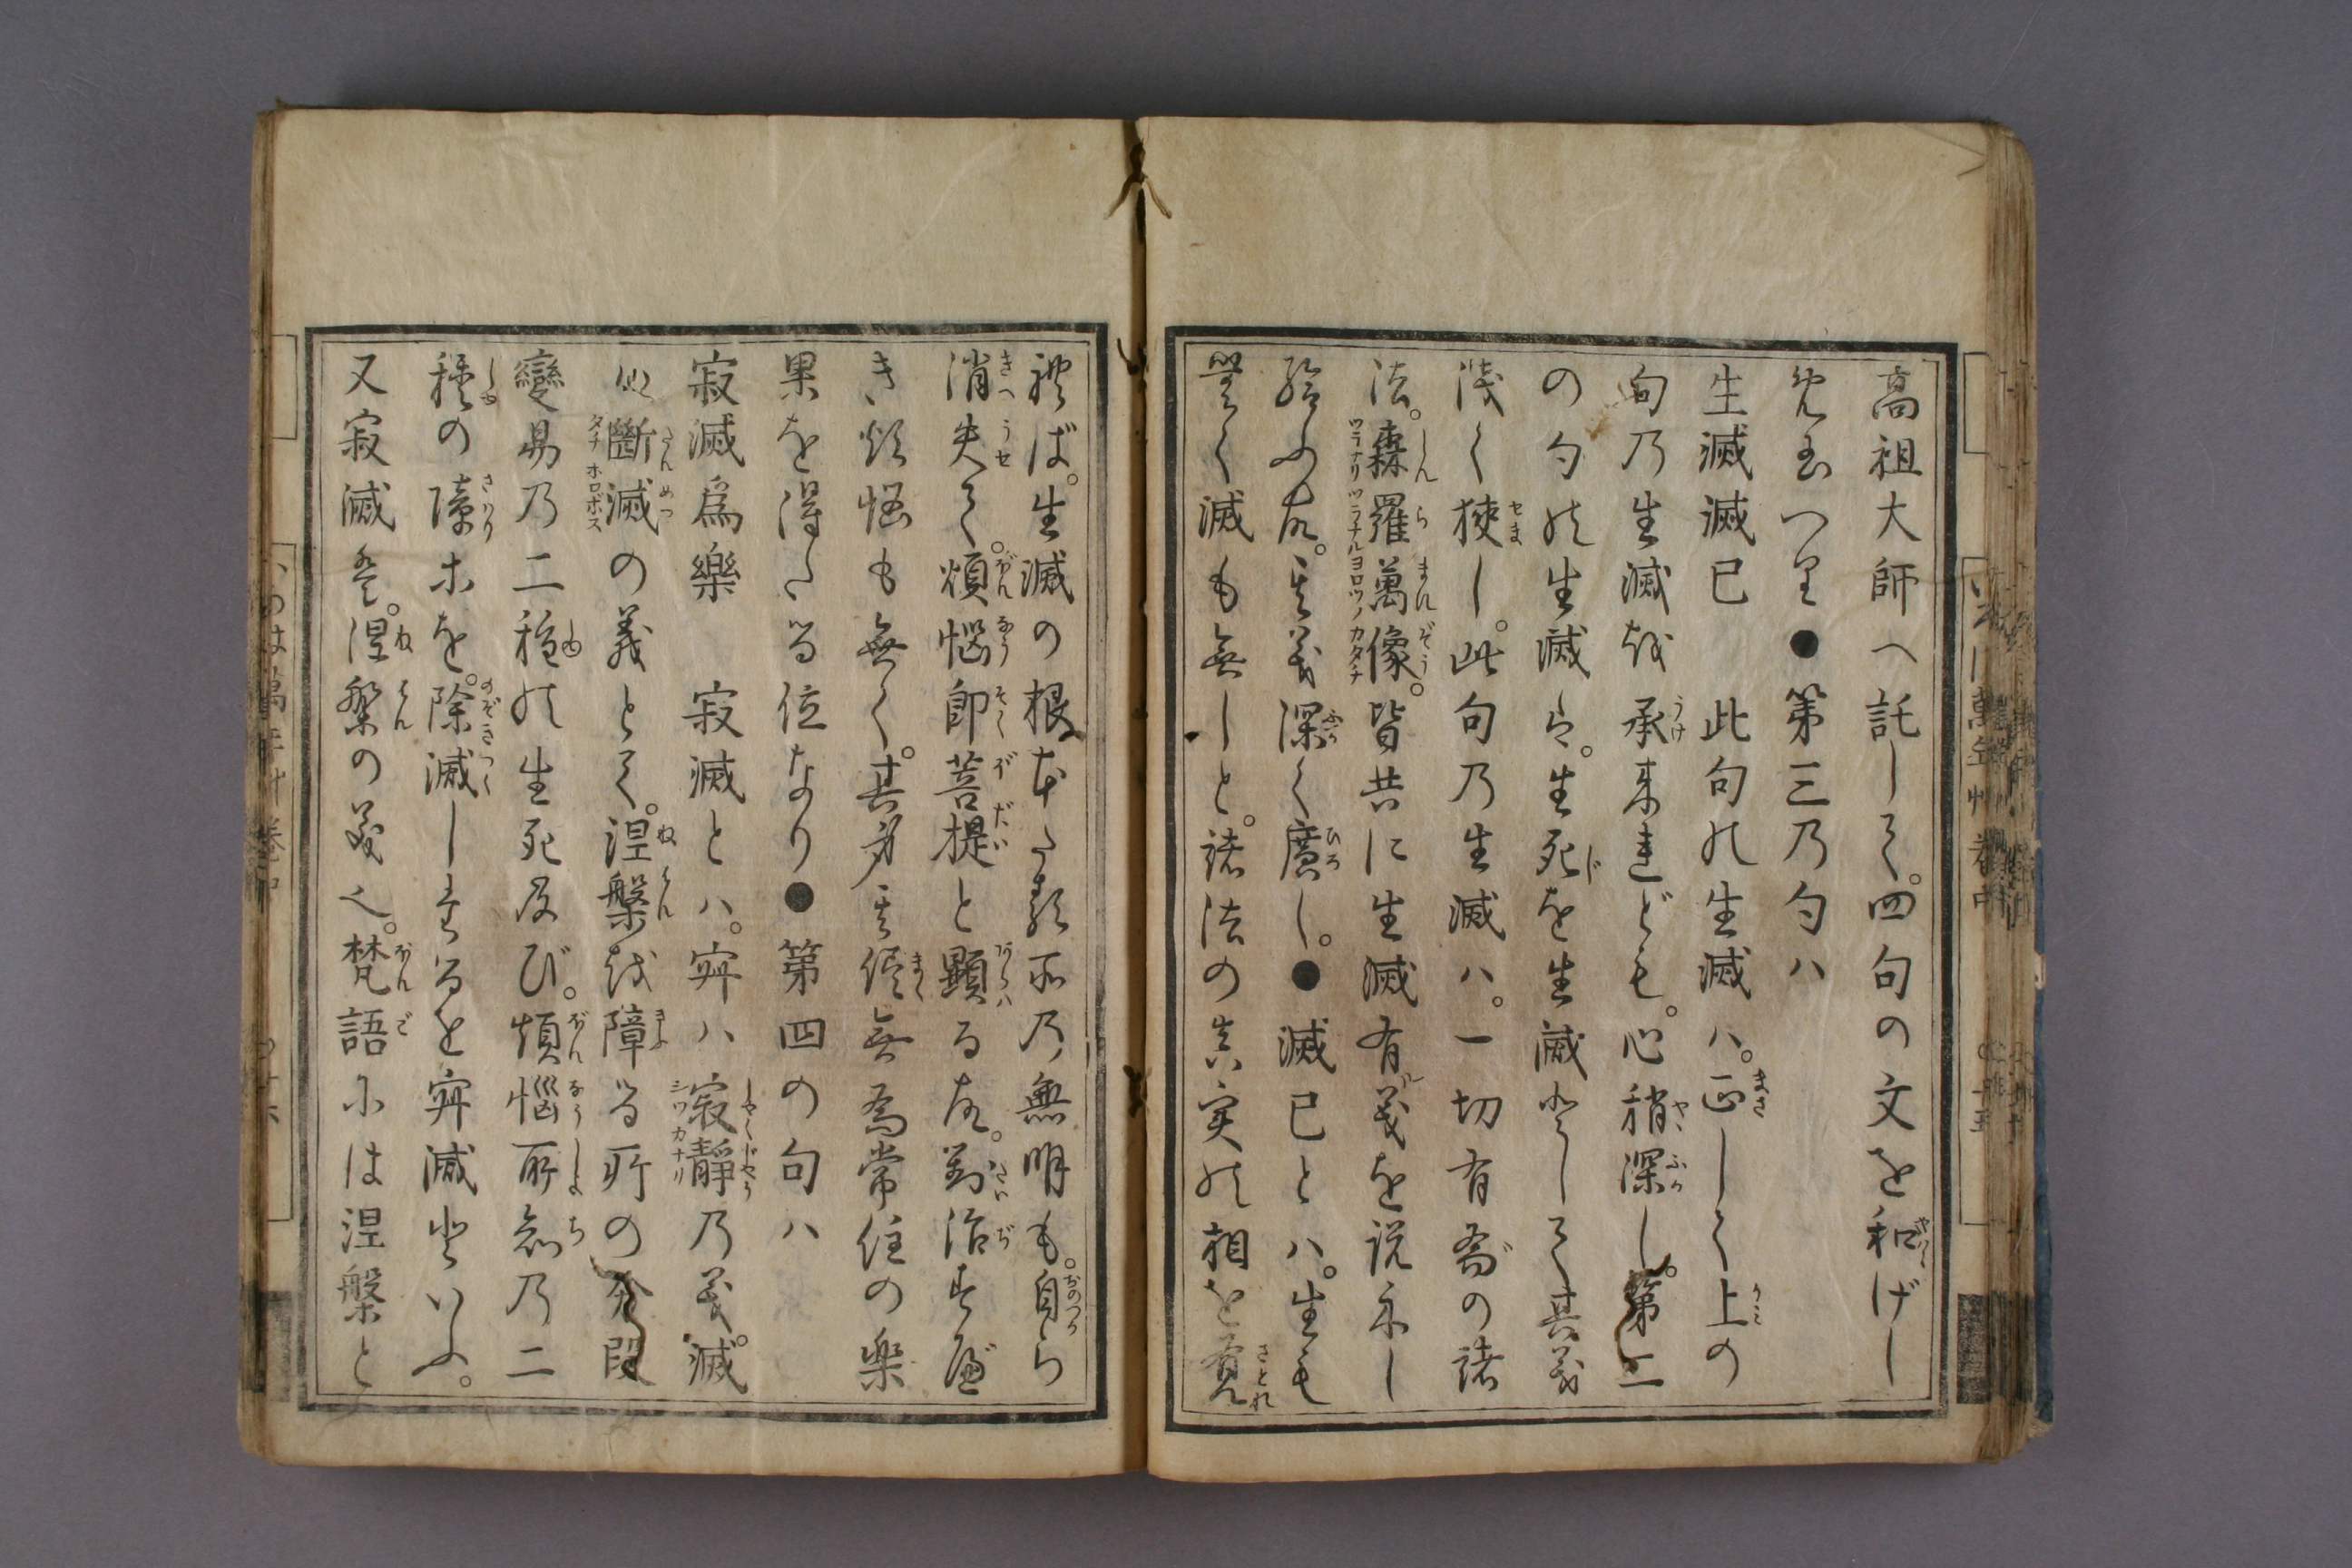 高祖大師へ託して。四句の文を和げし
め玉へり●第三乃句ハ
生滅滅已　此句の生滅ハ。正しく上の
句乃生滅を承来れども。心稍深し。第二
の句の生滅は。生死を生滅として其義
浅く狭し。此句乃生滅ハ。一切有為の諸
法。森羅萬像。皆共に生滅有義を説示し
給ふ故。其義深く廣し。●滅已とハ。生も
無く滅も無しと。諸法の真実の相を覚
れば。生滅の根本たる所乃無明も。自ら
消失て。煩惱即菩提と顕る故。對治すべ
き煩惱も無く。其身其侭無為常住の楽
果を得たる位なり●第四の句ハ
寂滅為樂　寂滅とハ。寂ハ寂靜乃義。滅
ハ斷滅の義とて。涅槃を障る所の分段
變易乃二種の生死及び。煩惱所知乃二
種の障ホを。除滅しするを寂滅といふ。
又寂滅を。涅槃の義也。梵語には涅槃と